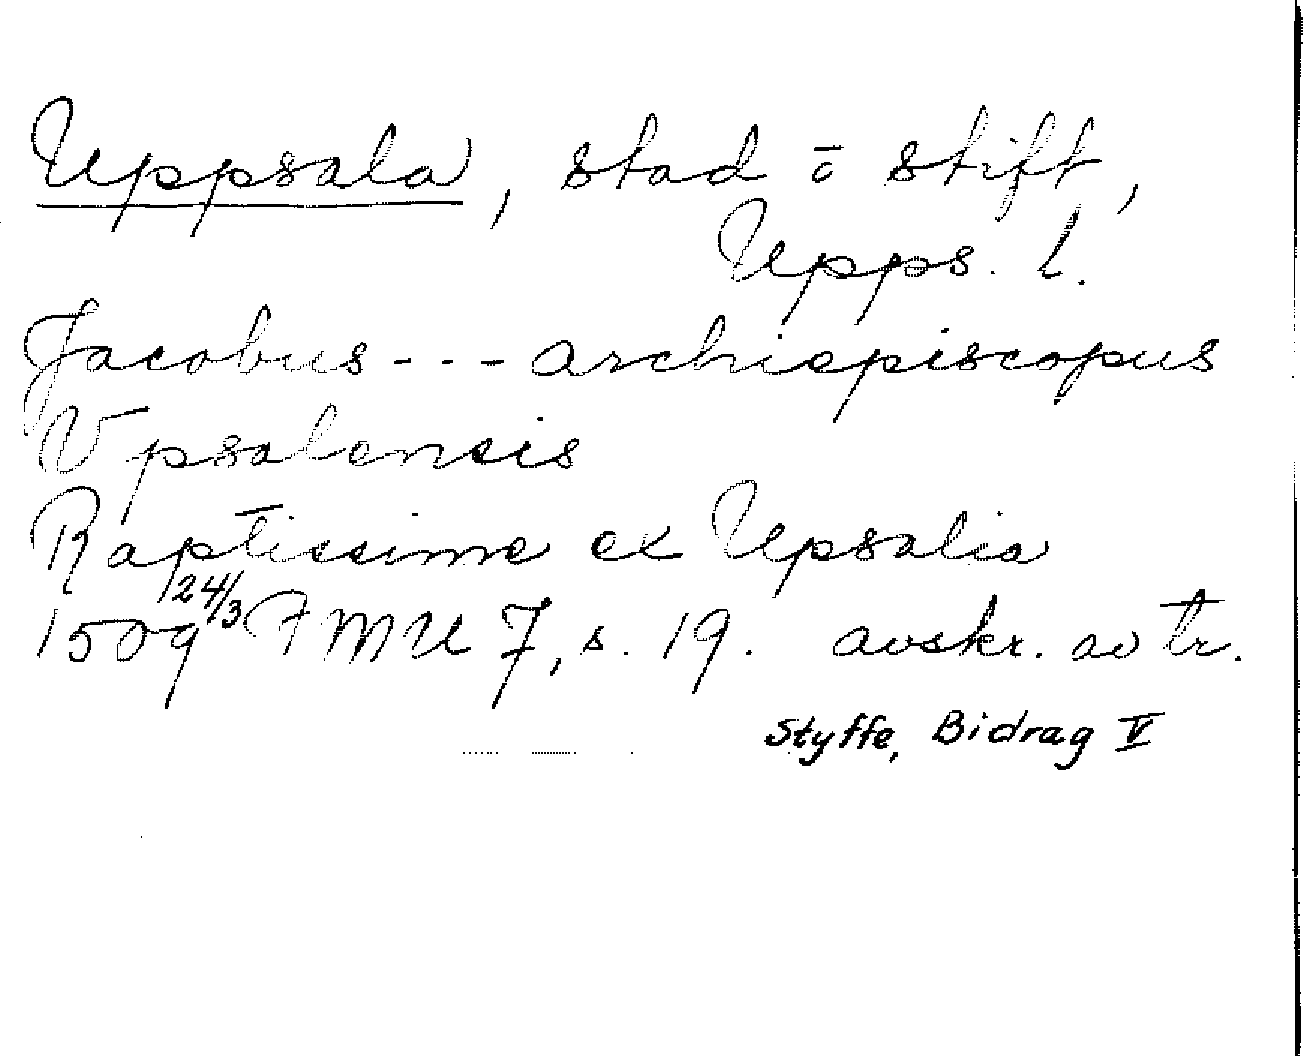 Uppsala, stad o stift,
Upps. l.
Jacobus - - - archiepiscopus
Vpsalensis
Raptissime ex Upsalia
1509 24/3 FMU 7, s. 19. avskr. av tr.
Styffe, Bidrag V